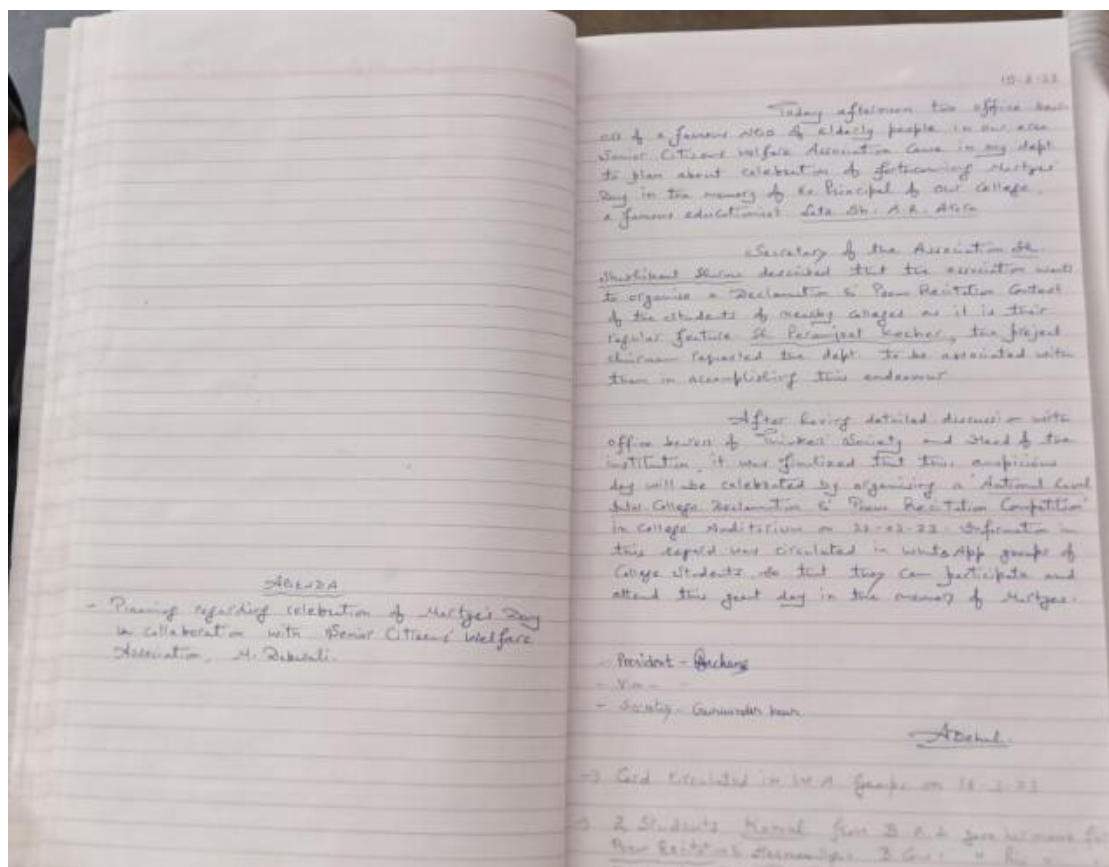 AGENDA
- Planning regarding celebration of Martyr's Day
in collaboration with Senior Citizens' Welfare
Association, M. Dabwali.
Today afternoon two office bear-
ers of a famous NGO of elderly people in our area
Senior Citizens Welfare Association came in my dept
to plan about celebration of forthcoming Martyrs'
Day in the memory of Ex Principal of our College,
a famous educationist Late Sh. A.R. Arora
Secretary of the Association Sh.
described that the association wants
to organise a Declamation & Poem Recitation Contest
of the students of nearby colleges as it is their
regular feature Sh Paramjeet Kocher, the project
chairman requested the dept. to be associated with
them in accomplishing this endeavour
After having detailed discussion with
office bearers of Thinkers' Society and Head of the
institution, it was finalized that this auspicious
day will be celebrated by organising a 'National Level
Inter College Declamation & Poem Recitation Competition'
in College Auditorium on -03-23. Information in
this regard was circulated in WhatsApp groups of
College Students, so that they can participate and
attend this great day in the memory of Martyrs.
- President -
- Vice -
- Secretary - Gurwinder kaur
-> Card circulated in W A Groups on -3-23
-> 2 Students from B A